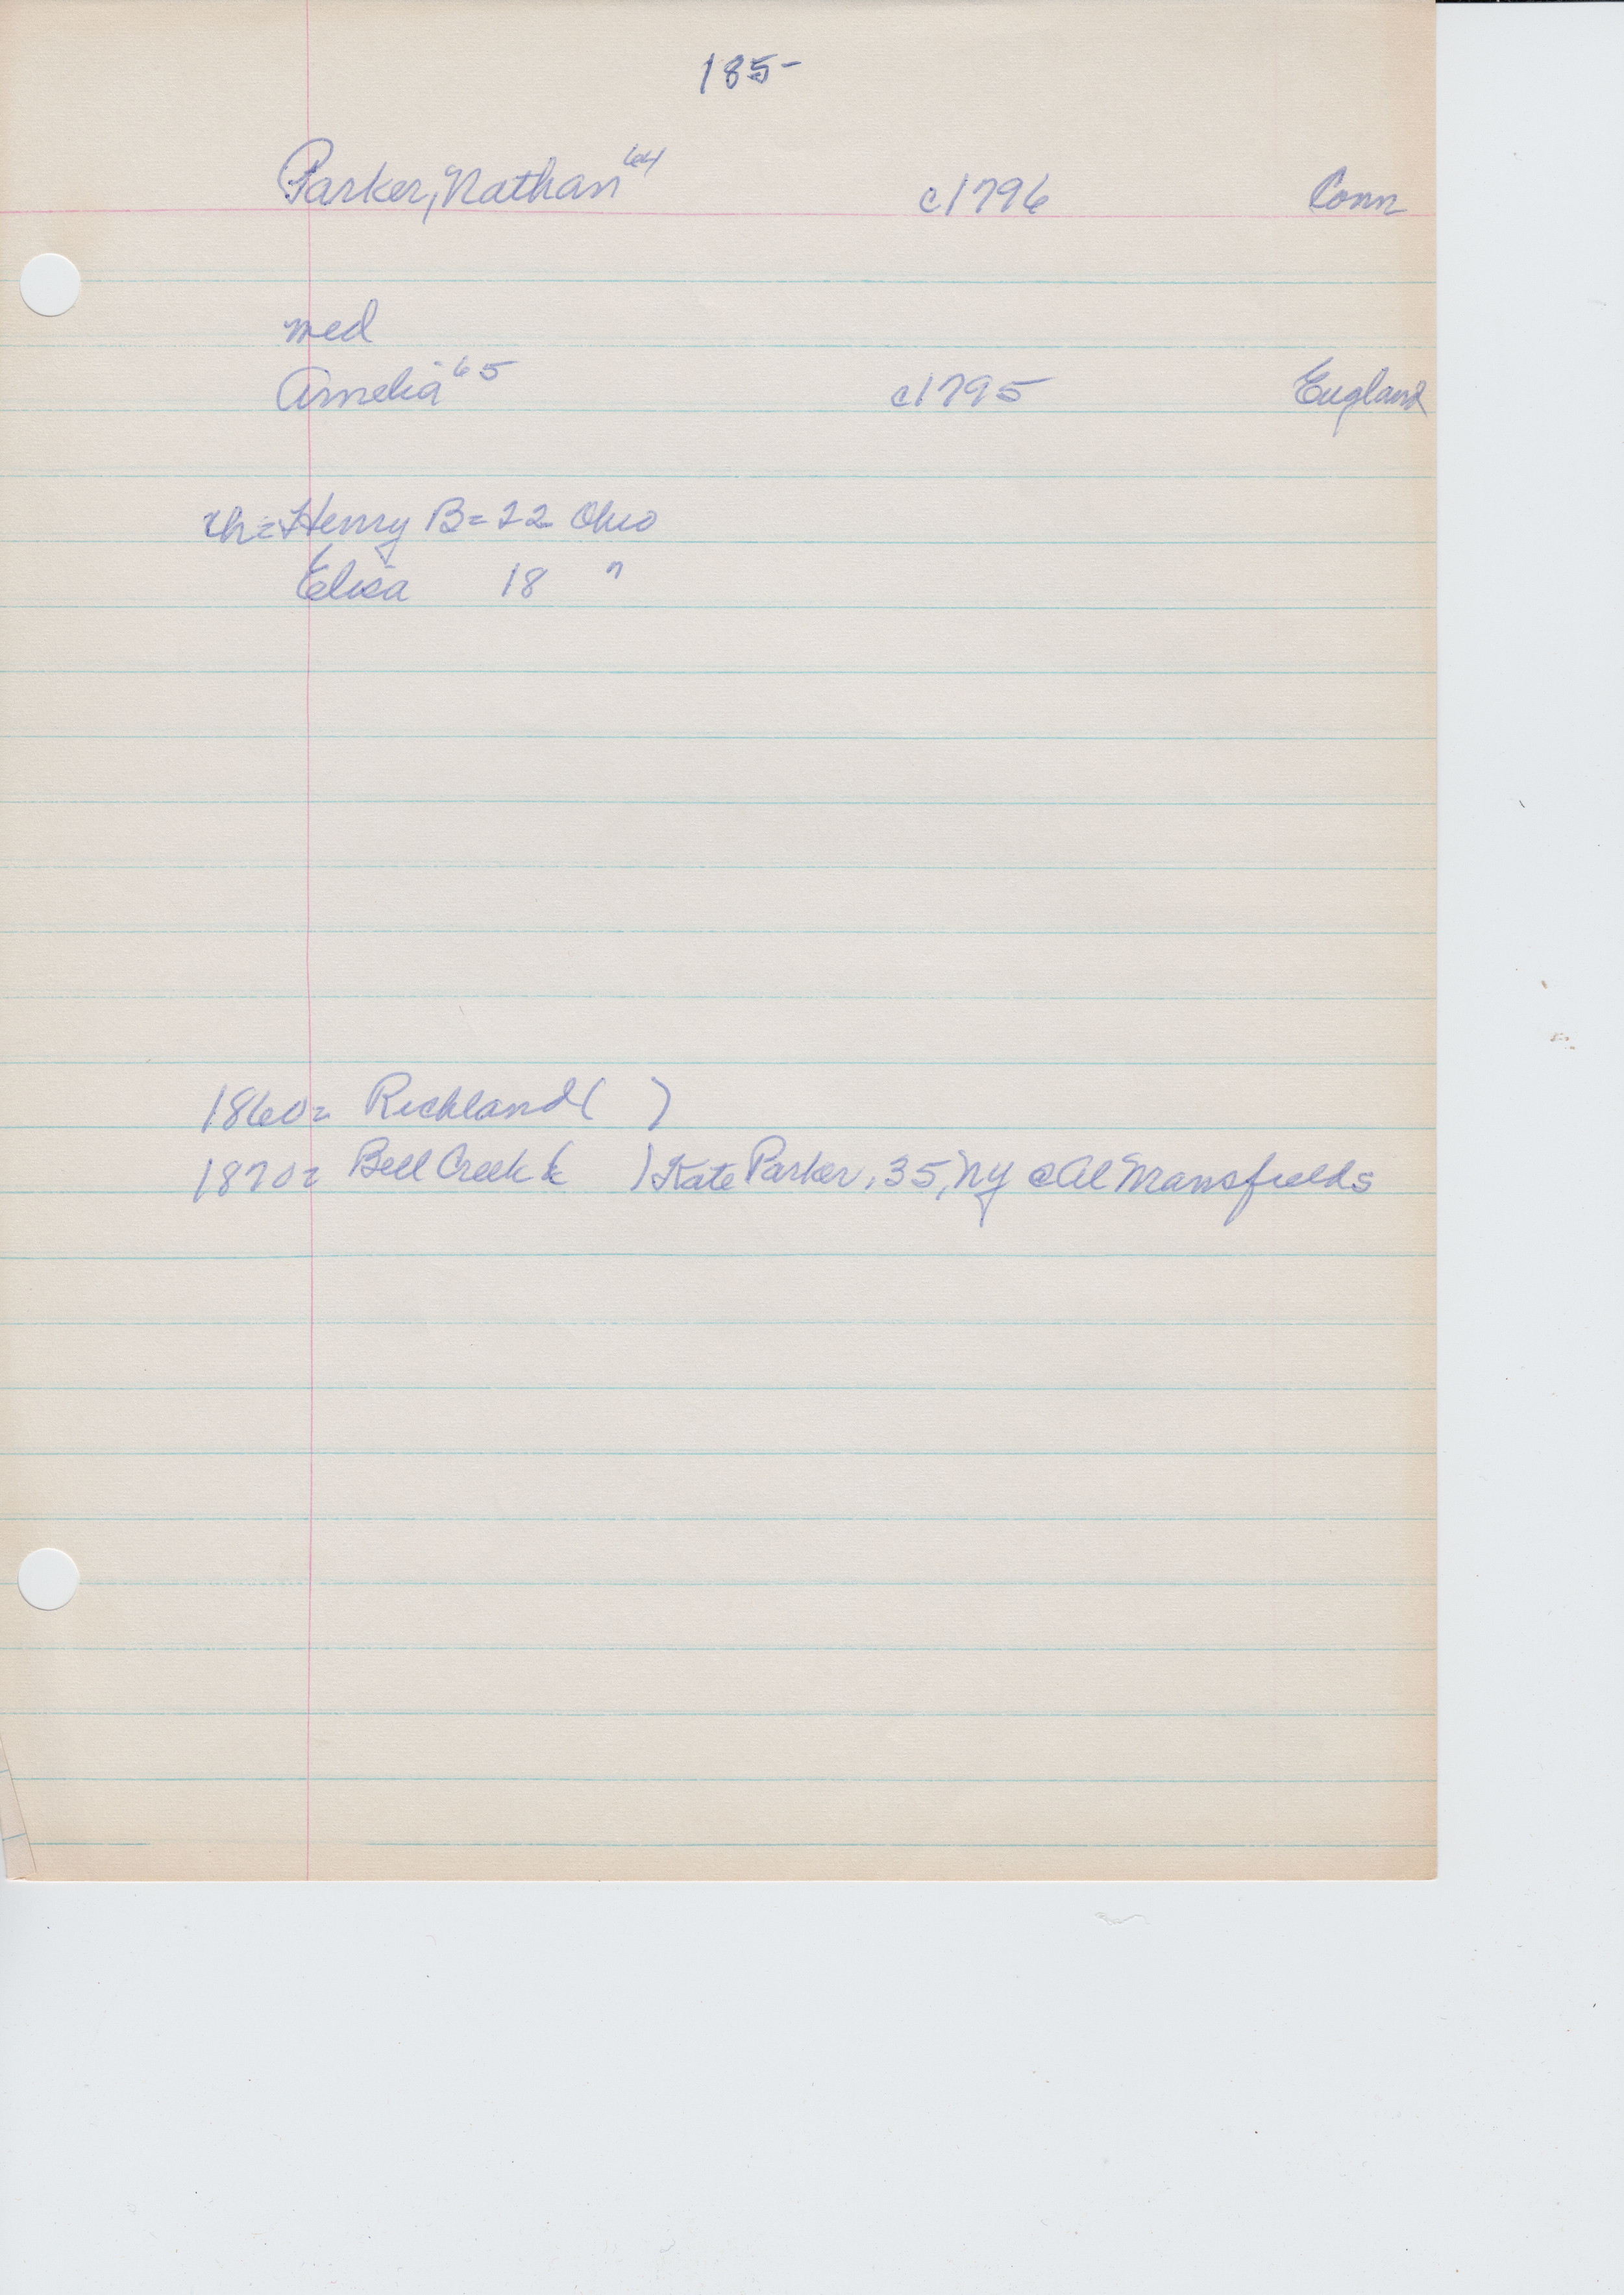 185-
Parker, Nathan 64 c1796 Conn
med
Amelia 65 c1795 England
ch= Henry B= 22 Ohio
Elisa 18 "
1860= Richland ( )
1870= Bell Creek ( ) Kate Parker, 35, NY @ Al Mansfields